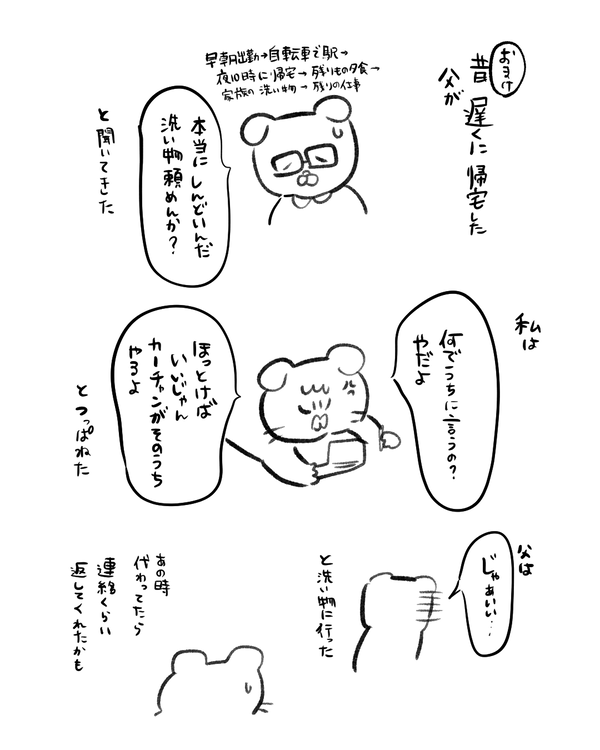 おまけ
昔
父が
遅くに帰宅した
早朝出勤→自転車で駅→
夜10時に帰宅→残りもの夕食→
家族の洗い物→残りの仕事
本当にしんどいんだ
洗い物頼めんか?
と聞いてきた
私は
何でうちに言うの?
やだよ
ほっとけば
いいじゃん
カーチャンがそのうち
やるよ
とつっぱねた
父は
じゃあいい…
と洗い物に行った
あの時
代わってたら
連絡くらい
返してくれたかも